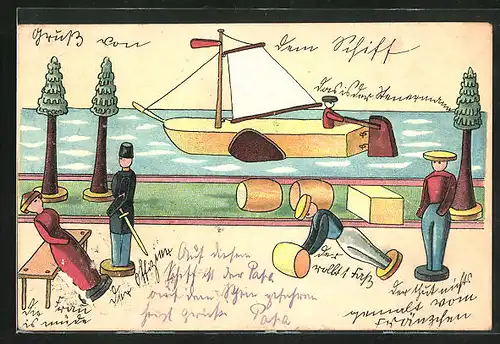 Gruß von dem Schiff
Das ist der Steuermann
Die Frau
is müde
Der Offizier
Auf diesem
Schiff ist der Papa
auf dem Rhein gefahren
Papa
der
rollt s Faß
der thut nichts
gemalt vom
Fränzchen